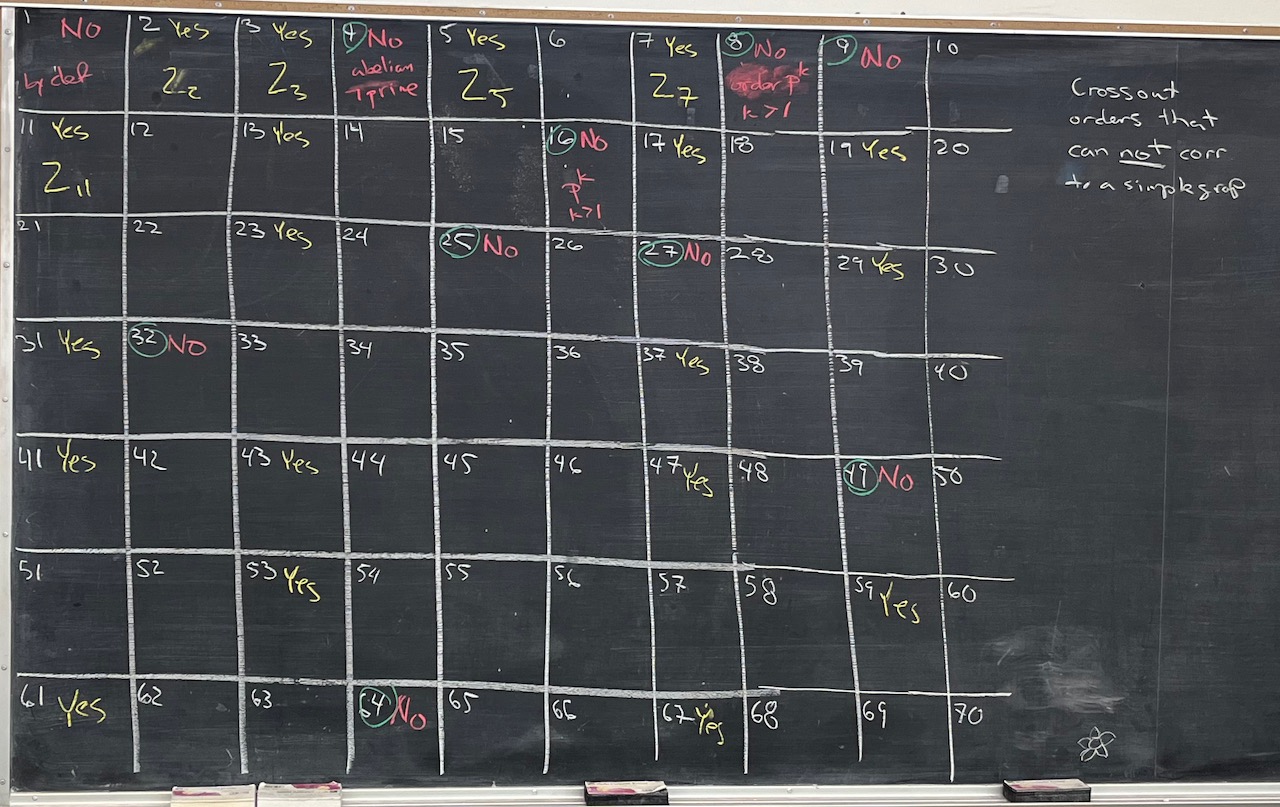 1 No 2 Yes 3 Yes 4 No 5 Yes 6 7 Yes 8 No 9 No 10
by def Z₂ Z₃ abelian Z₅ Z₇ order pᵏ
1 prime k>1
Crossout
orders that
can not corr
to a simple grop
11 Yes 12 13 Yes 14 15 16 No 17 Yes 18 19 Yes 20
Z₁₁ pᵏ
k>1
21 22 23 Yes 24 25 No 26 27 No 28 29 Yes 30
31 Yes 32 No 33 34 35 36 37 Yes 38 39 40
41 Yes 42 43 Yes 44 45 46 47 Yes 48 49 No 50
51 52 53 Yes 54 55 56 57 58 59 Yes 60
61 Yes 62 63 64 No 65 66 67 Yes 68 69 70